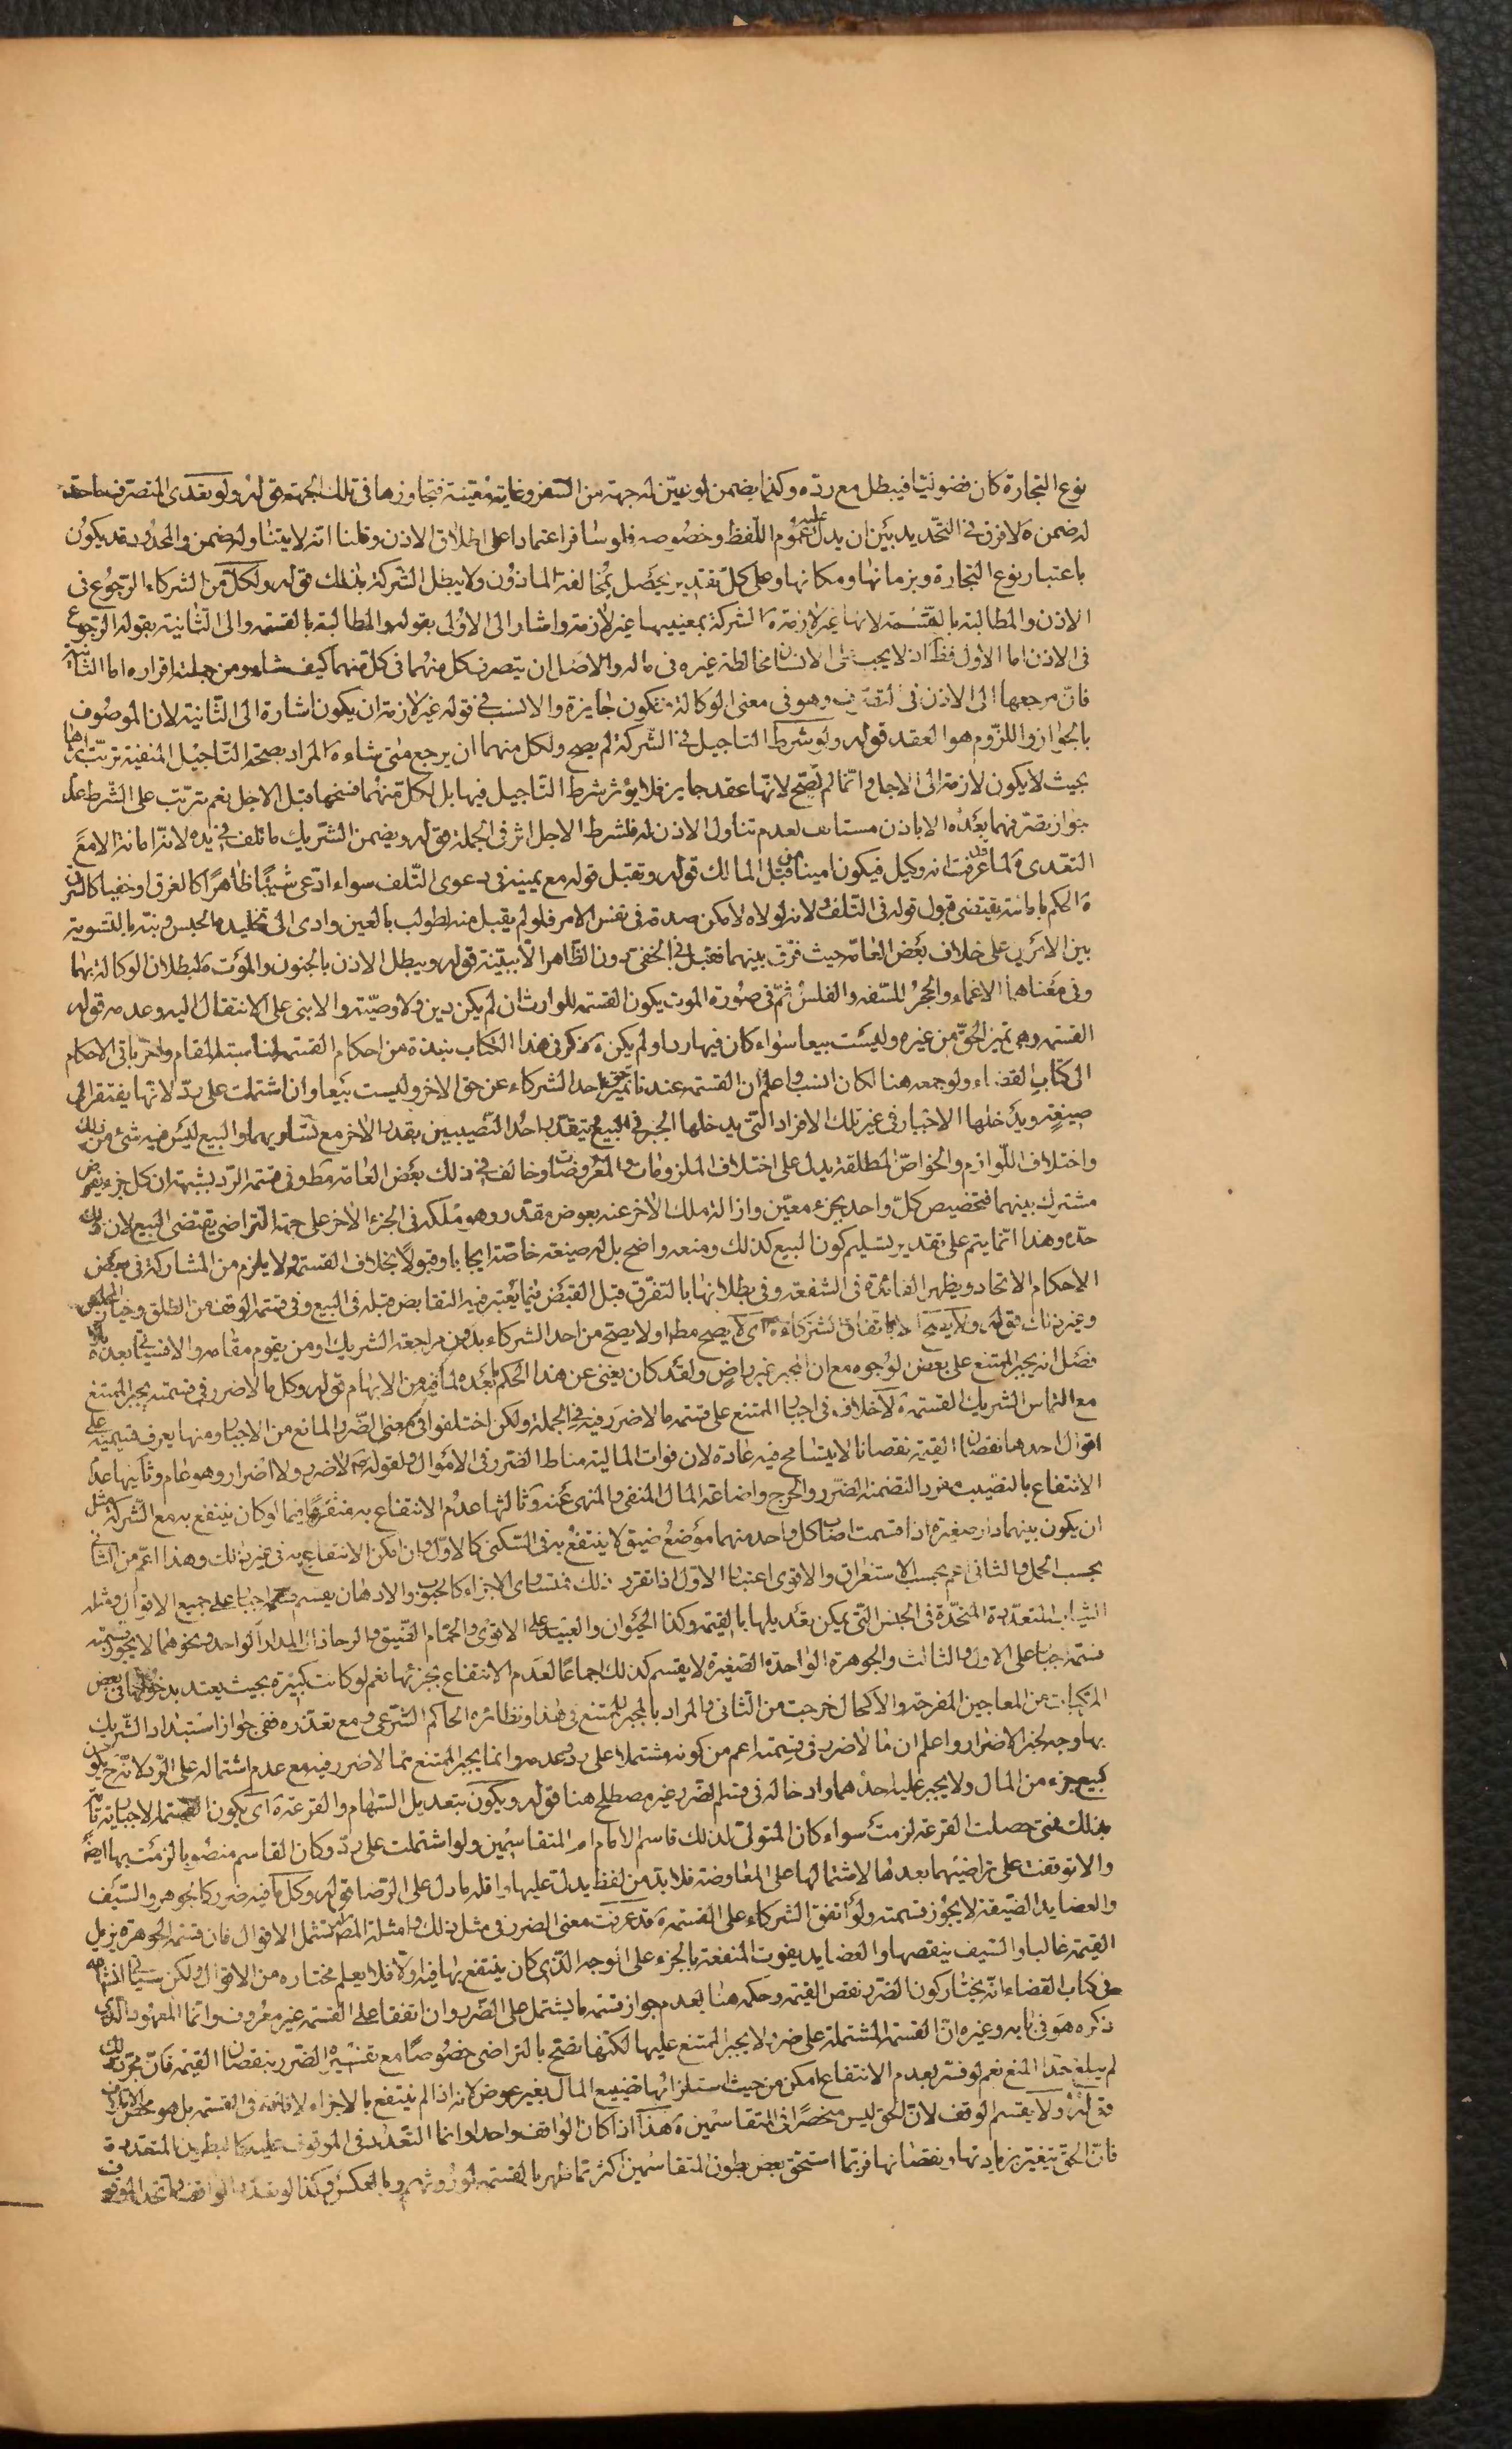 نوع التجارة كان فضوليا فيبطل مع رده وكذا يضمن لو عين له جهة من السفر وغاية معينة فتجاوزها في تلك الجهة قوله ولو تعدى المتصرف ما حد
له ضمن ه لا فرق في التحديد بين ان يدل عليه عموم اللفظ وخصوصه فلو سافر اعتمادا على اطلاق الاذن وقلنا انه لا يتناوله ضمن والمحدود قد يكون
باعتبار نوع التجارة وبزمانها ومكانها وعلى كل تقدير يحصل بمخالفة الماذون ولا يبطل الشركة بذلك قوله ولكل من الشركاء الرجوع في
الاذن والمطالبة بالقسمة لانها غير لازمة ه الشركة بمعنييها غير لازمة واشار الى الاولى بقوله والمطالبة بالقسمة والى الثانية بقوله الرجوع
في الاذن اما الاول فظ اذ لا يجب على الانسان مخالطة غيره في ماله والاصل ان يتصرف كل منهما في كل منهما كيف شاء ومن جملته اقراره اما الثانية
فان مرجعها الى الاذن في التصرف وهو في معنى الوكالة فتكون جايزة والانسب في قوله غير لازمة ان يكون اشارة الى الثانية لان الموصوف
بالجواز واللزوم هو العقد قوله ولو شرط التاجيل في الشركة لم يصح ولكل منهما ان يرجع متى شاء ه المراد بصحة التاجيل المنفية ترتب اثرها
بحيث لا يكون لازمة الى الاجل وانما لم تصح لانها عقد جايز فلا يؤثر شرط التاجيل فيها بل لكل منهما فسخها قبل الاجل نعم يترتب على الشرط عدم
جواز تصرفهما بعده الا باذن مستانف لعدم تناول الاذن له فلشرط الاجل اثر في الجملة قوله ويضمن الشريك ما تلف في يده لانه امانة الا مع
التعدي ه لما عرفت انه وكيل فيكون امينا من قبل المالك قوله وتقبل قوله مع يمينه في دعوى التلف سواء ادعى شيئا ظاهرا كالغرق او خفيا كالسرق
ه الحكم بامانته يقتضي قبول قوله في التلف ولانه لولاه لامكن صدقه في نفس الامر فلو لم يقبل منه لطولب بالعين وادى الى تخليده الحبس ونبه بالتسوية
بين الامرين على خلاف بعض العامة حيث فرق بينهما فقبل في الخفي دون الظاهر الا ببينة قوله ويبطل الاذن بالجنون والموت ه لبطلان الوكالة بهما
وفي معناهما الاغماء والحجر للسفه والفلس ثم في صورة الموت يكون القسمة للوارث ان لم يكن دين ولا وصية والا بنى على الانتقال اليه وعدمه قوله
القسمة وهي تميز الحق من غيره وليست بيعا سواء كان فيها رد او لم يكن ه ذكر في هذا الكتاب نبذة من احكام القسمة لمناسبة المقام واخر باقي الاحكام
الى كتاب القضاء ولو جمعه هنا لكان انسب واعلم ان القسمة عندنا تميز حق احد الشركاء عن حق الاخر وليست بيعا وان اشتملت على رد لانها لا يفتقر الى
صيغة ويدخلها الاخبار في غير تلك الافراد التي يدخلها الجبر في البيع ويتقدر احد النصيبين بقدر الاخر مع تساويهما والبيع ليس فيه شئ من ذلك
واختلاف اللوازم والخواص المطلقة يدل على اختلاف الملزومات والمعروضات وخالف في ذلك بعض العامة مطا وفي قسمة الرد بشبهة ان كل جزء يفرض
مشترك بينهما فتخصيص كل واحد بجزء معين وازالة ملك الاخر عنه بعوض مقدر وهو ملكه في الجزء الاخر على جهة التراضي يقتضي البيع لان ذلك
حده وهذا انما يتم على تقدير تسليم كون البيع كذلك ومنعه واضح بل له صيغة خاصة ايجابا وقبولا بخلاف القسمة ولا يلزم من المشاركة في بعض
الاحكام الاتحاد ويظهر الفائدة في الشفعة وفي بطلانها بالتفرق قبل القبض فيما يعتبر فيه التقابض قبله في البيع وفي قسمة الوقف من الطلق وخيار المجلس
وغير ذلك قوله ولا يصح الا باتفاق الشركاء ه اي لا يصح مطا او لا يصح من احد الشركاء بدون مراجعة الشريك او من يقوم مقامه والا فسياتي بعده بلا
فصل انه يجبر الممتنع على بعض الوجوه مع ان المجبر غير راض ولقد كان يغني عن هذا الحكم ما بعده لما فيه من الابهام قوله وكل ما لا ضرر في قسمته يجبر الممتنع
مع التماس الشريك القسمة ه لا خلاف في اجبار الممتنع على قسمة ما لا ضرر فيه في الجملة ولكن اختلفوا في معنى الضرر المانع من الاجبار ومنها يعرف قسيمه على
اقوال احدها نقصان القيمة نقصانا لا يتسامح فيه عادة لان فوات المالية مناط الضرر في الاموال ولقوله ص لا ضرر ولا اضرار وهو عام وثانيها عدم
الانتفاع بالنصيب مفردا لتضمنه الضرر والحرج واضاعة المال المنفي والمنهي عنه وثالثها عدم الانتفاع به منفردا فيما لو كان ينتفع به مع الشركة مثل
ان يكون بينهما دار صغيرة اذا قسمت اصاب كل واحد منهما موضع ضيق لا ينتفع به في السكنى كالاول وان امكن الانتفاع به في غير ذلك وهذا اعم من الثاني
بحسب الحمل والثاني اعم بحسب الاستغراق والاقوى اعتبار الاول اذا تقرر ذلك فمتساوى الاجزاء كالحبوب والادهان يقسم قسمة اجبار على جميع الاقوال ومثله
الثياب المتعددة المتخذة في الجنس التي يمكن تعديلها بالقيمة وكذا الحيوان والعبيد على الاقوى والحمام الضيق والرحا ذات المدار الواحد ونحوهما لا يجوز قسمته
قسمة اجبار على الاول والثالث والجوهرة الواحدة الصغيرة لا يقسم كذلك اجماعا لعدم الانتفاع بجزئها نعم لو كانت كبيرة بحيث يعتد بدخولها في بعض
المركبات من المعاجين المفرحة والاكحال خرجت من الثاني والمراد بالمجبر للممتنع في هذا ونظائره الحاكم الشرعي ومع تعذره ففي جواز استبداد الشريك
بها وجه لخبر الاضرار واعلم ان ما لا ضرر في قسمته اعم من كونه مشتملا على رد وعدمه وانما يجبر الممتنع بما لا ضرر فيه مع عدم اشتماله على الرد لانه ح يكون
كبيع جزء من المال ولا يجبر عليه احدهما وادخاله في قسم الضرر غير مصطلح هنا قوله ويكون بتعديل السهام والقرعة ه اي يكون القسمة الاجبارية تامة
بذلك فمتى حصلت القرعة لزمت سواء كان المتولي لذلك قاسم الامام ام المتقاسمين ولو اشتملت على رد وكان القاسم منصوبا لزمت بها ايضا
والا توقفت على تراضيهما بعدها لاشتمالها على المعاوضة فلا بد من لفظ يدل عليها واقله ما دل على الرضا قوله وكل ما فيه ضرر كالجوهر والسيف
والعضايد الضيقة لا يجوز قسمته ولو اتفق الشركاء على القسمة ه قد عرفت معنى الضرر في مثل ذلك وامثلة المص تشتمل الاقوال فان قسمة الجوهرة يزيل
القيمة غالبا والسيف ينقصها والعضايد يفوت المنفعة بالجزء على الوجه الذي كان ينتفع بها فيه اولا فلا يعلم مختاره من الاقوال ولكن سياتي انش
في كتاب القضاء انه يختار كون الضرر نقص القيمة وحكمه هنا بعدم جواز قسمة ما يشتمل على الضرر وان اتفقا على القسمة غير معروف وانما المعهود الذي
ذكره هو في بابه وغيره ان القسمة المشتملة على ضرر لا يجبر الممتنع عليها لكنها تصح بالتراضي خصوصا مع تفسيره الضرر بنقصان القيمة فان مجرد ذلك
لم يبلغ حد المنع نعم لو فسر بعدم الانتفاع امكن من حيث استلزامها تضييع المال بغير عوض لانه اذا لم ينتفع بالاجزاء لا فائدة في القسمة بل هو محض الاتلاف
قوله ولا يقسم الوقف لان الحق ليس منحصرا في المتقاسمين ه هذا اذا كان الواقف واحدا وانما التعدد في الموقوف عليه كالبطون المتعددة
فان الحق يتغير بزيادتها ونقصانها فربما استحق بعض بطون المتقاسمين اكثر مما ظهر بالقسمة لمورثهم وبالعكس وكذا لو تعدد الواقف واتحد الموقوف